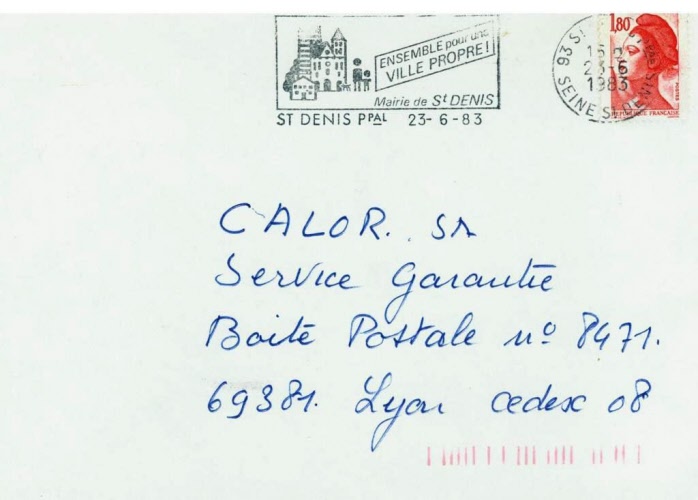 ENSEMBLE pour une
VILLE PROPRE!
Mairie de St DENIS
ST DENIS PPAL 23-6-83
93 ST
23-6
1983
SEINE ST DENIS
1,80
POSTES
REPUBLIQUE FRANÇAISE
CALOR. SA
Service Garantie
Boite Postale nº 8471.
69381. Lyon cedex 08